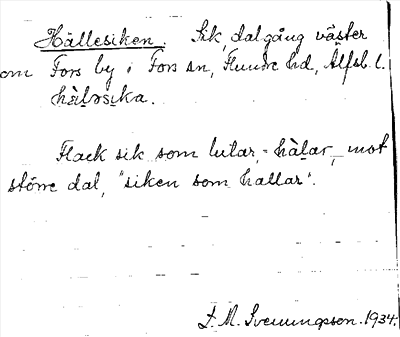 Hällesiken. Sik dalgång väster
om Fors by i Fors sn, Flundre hd, Älfsb. l.
hàl̥əsi̥ka.
Flack sik som lutar, - hàl̥ar, mot
större dal, "siken som hallar".
S. M. Svenungsson. 1934.